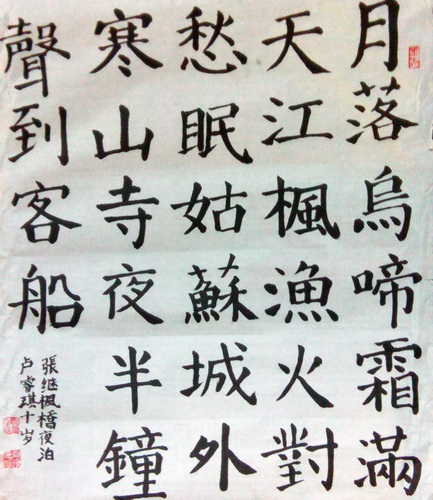 月落烏啼霜滿
天江楓漁火對
愁眠姑蘇城外
寒山寺夜半鐘
聲到客船
張继楓橋夜泊
卢睿琪十岁